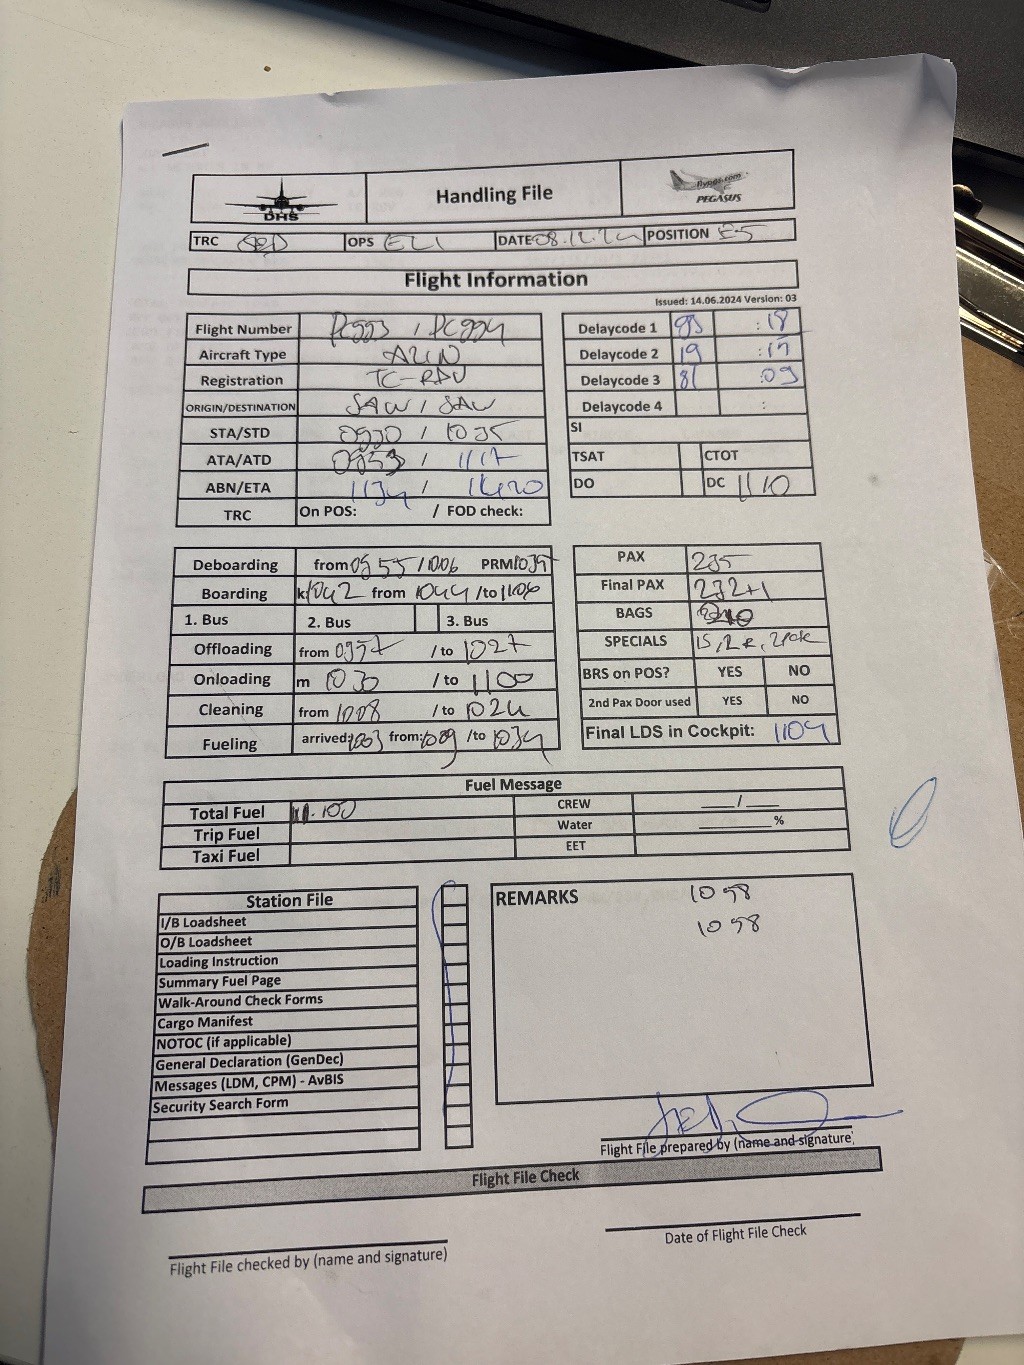 DHS
Handling File
flypgs.com
PEGASUS
TRC OPS ELI DATE 08.12.24 POSITION E-5
Flight Information
Issued: 14.06.2024 Version: 03
Flight Number PC993 / PC994
Aircraft Type A21N
Registration TC-RDU
ORIGIN/DESTINATION SAW / SAW
STA/STD 0930 / 1035
ATA/ATD 0953 / 1117
ABN/ETA 1134 / 1420
TRC On POS: / FOD check:
Delaycode 1 93 : 18
Delaycode 2 19 : 15
Delaycode 3 81 : 09
Delaycode 4 :
SI
TSAT CTOT
DO DC 1110
Deboarding from 0955 / 1006 PRM 1039
Boarding 1042 from 1044 / to 1106
1. Bus 2. Bus 3. Bus
Offloading from 0957 / to 1027
Onloading m 1030 / to 1100
Cleaning from 1008 / to 1024
Fueling arrived: 1003 from: 1009 / to 1034
PAX 235
Final PAX 232+1
BAGS
SPECIALS
BRS on POS? YES NO
2nd Pax Door used YES NO
Final LDS in Cockpit: 1104
Fuel Message
Total Fuel .100 CREW ____/____
Trip Fuel Water ________%
Taxi Fuel EET
Station File
I/B Loadsheet
O/B Loadsheet
Loading Instruction
Summary Fuel Page
Walk-Around Check Forms
Cargo Manifest
NOTOC (if applicable)
General Declaration (GenDec)
Messages (LDM, CPM) - AvBIS
Security Search Form
REMARKS 1058
1058
Flight File prepared by (name and signature)
Flight File Check
Flight File checked by (name and signature)
Date of Flight File Check